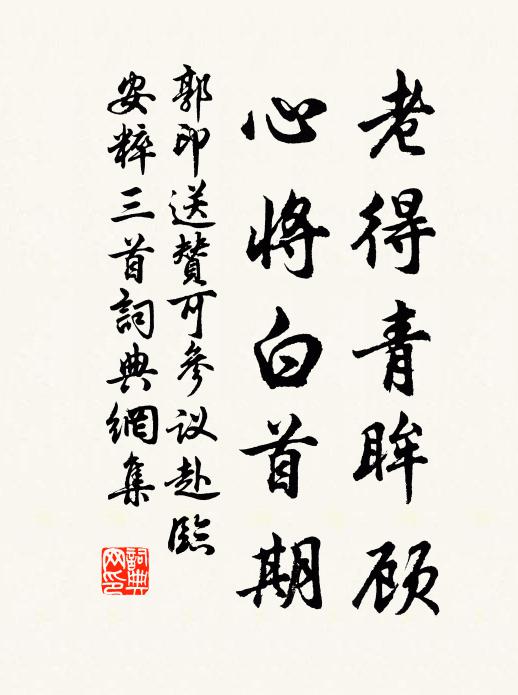 老得青眸顾
心将白首期
郭印送贊可参议赴臨
安粹三首詞典網集
詞典网印